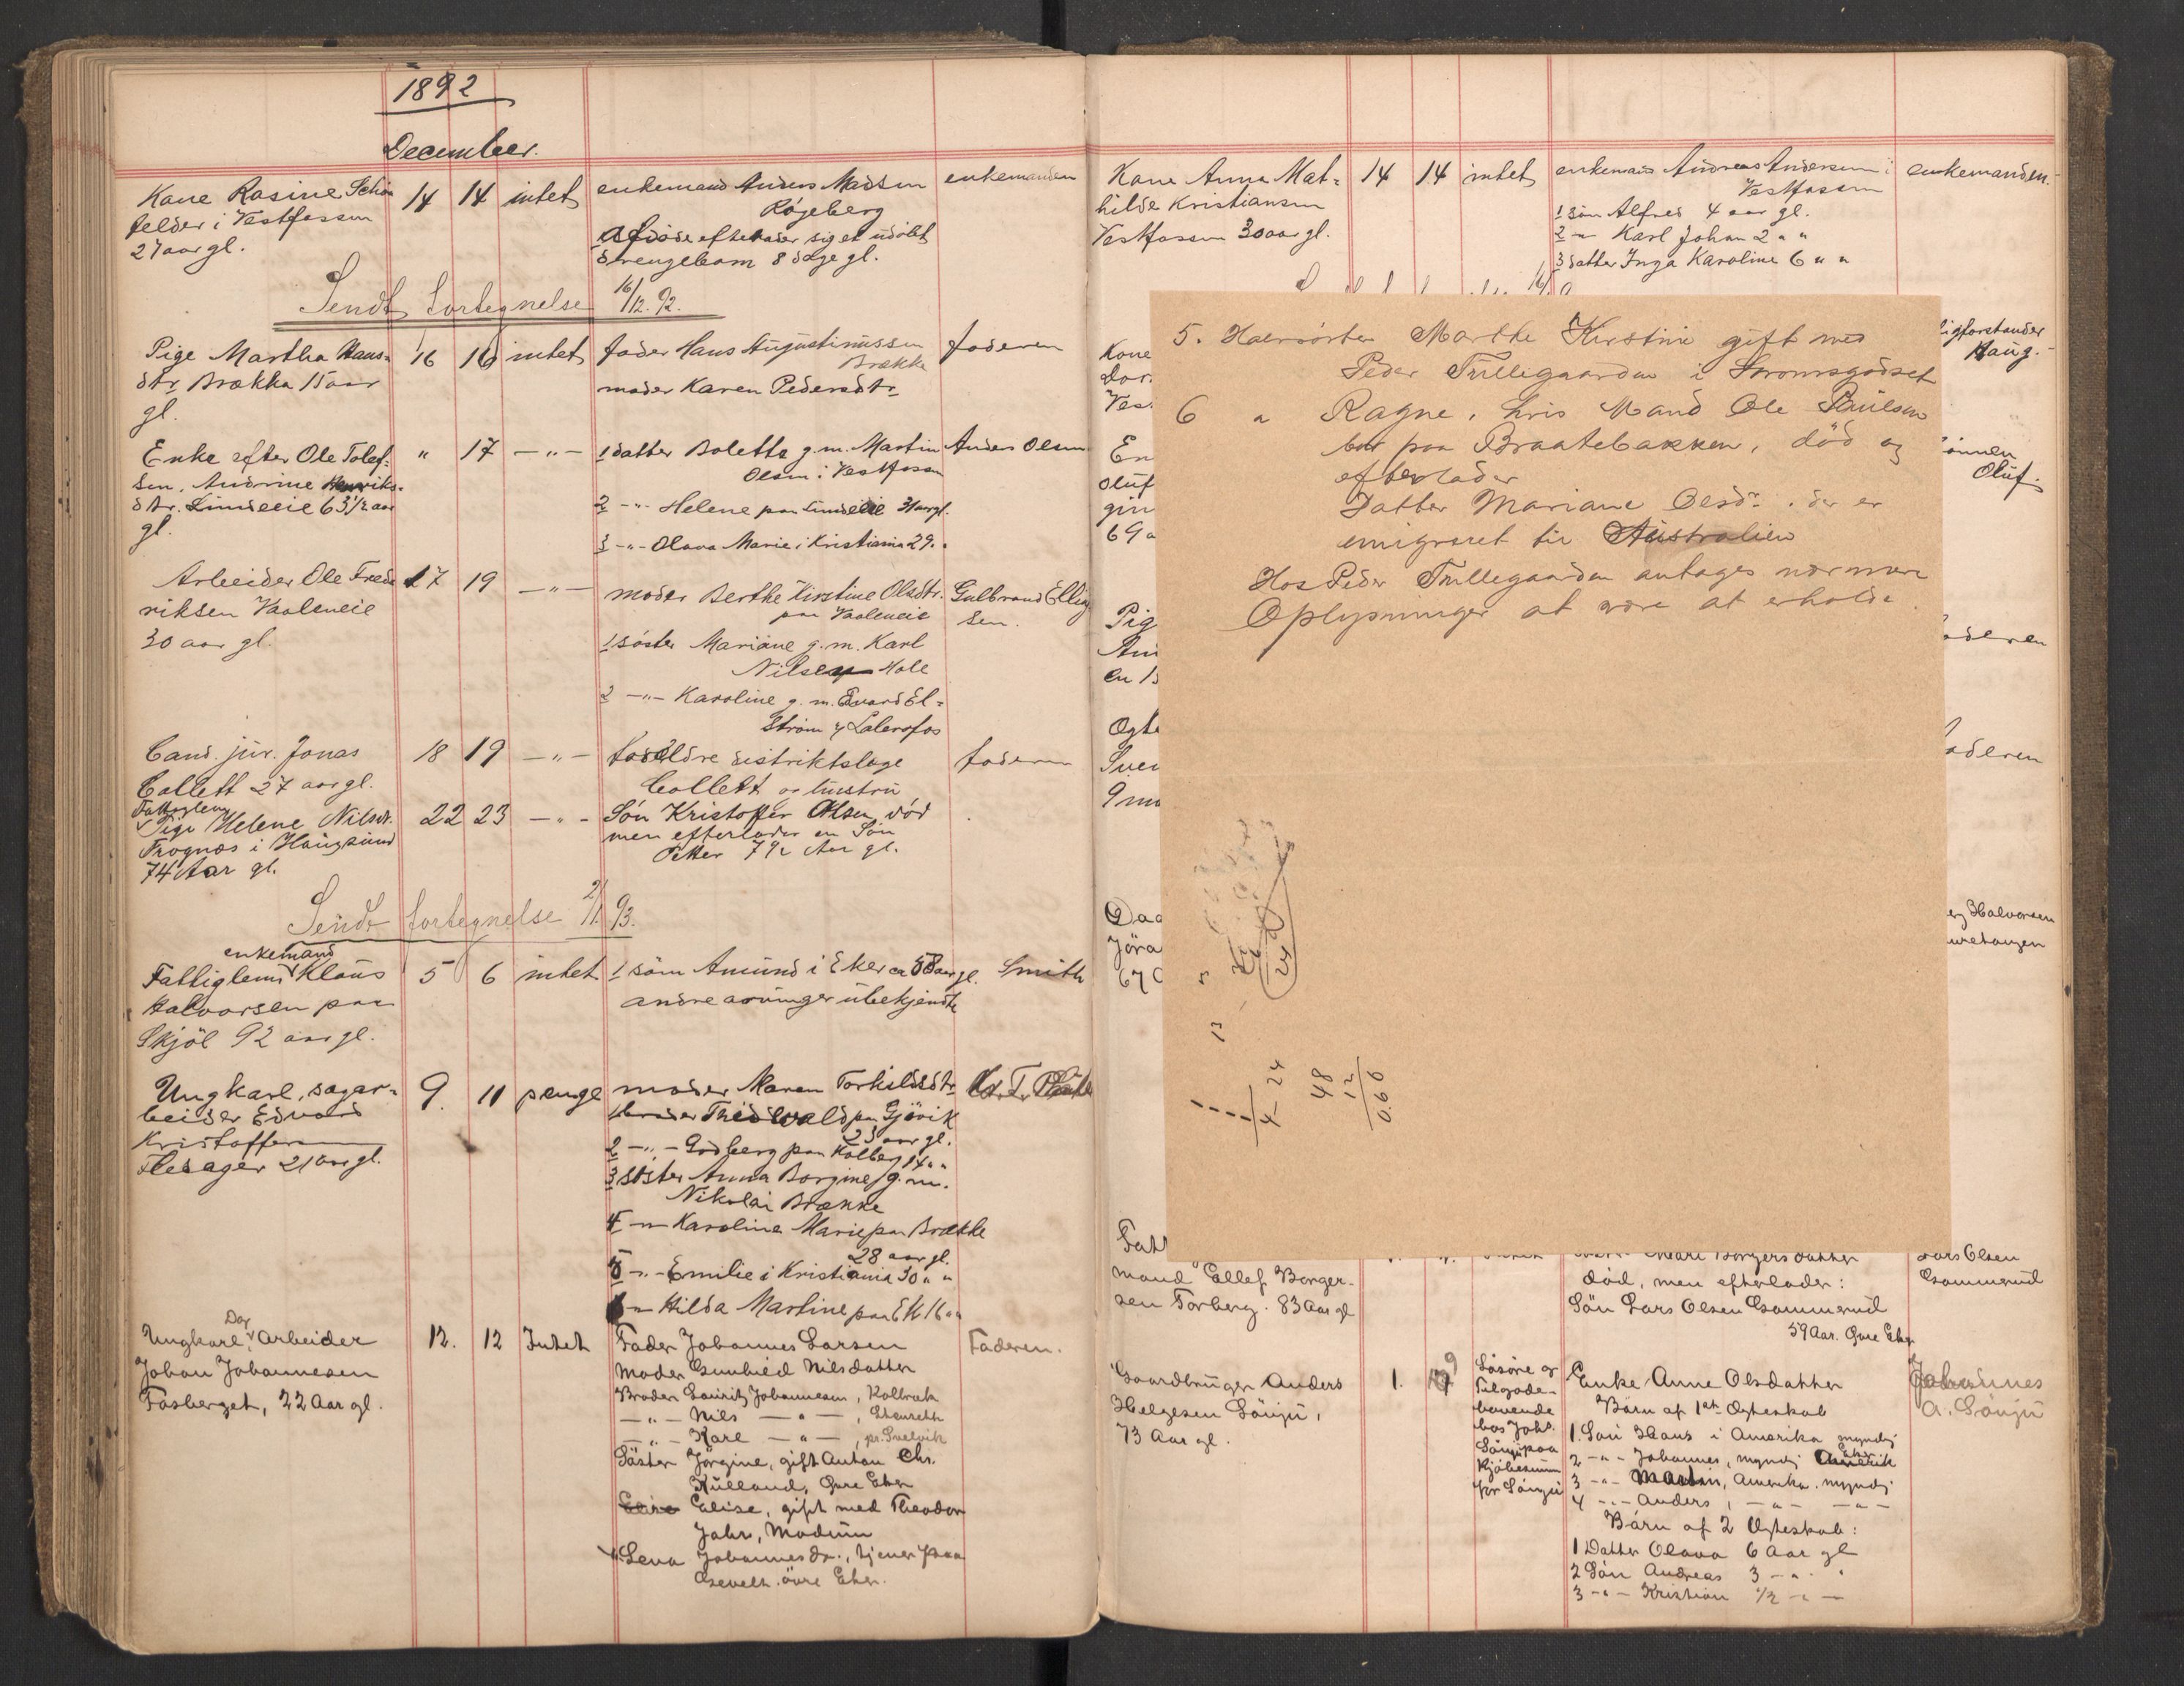 1892
December.
Kone Rasine Schön
felder i Vestfossen
27 aar gl.
14 14 intet
enkemand Anders Madsen
Røgeberg
Afdöde efterlader sig et udöbt
drengebarn 8 dage gl.
enkemanden
Sendt fortegnelse 16/12. 92.
Pige Martha Hans-
dtr. Brække 15 aar
gl.
16 16 intet
fader Hans Augustinussen
Brække
moder Karen Pedersdtr.
faderen
Enke efter Ole Tolef-
sen, Andrine Henriks-
dtr. Lindeeie 63 1/2 aar
gl.
" 17 — " —
1 datter Bolette g.m. Martin
Olsen i Vestfossen
2 — " — Helene paa Lindeeie 31 aar gl.
3 — " — Olava Marie i Kristiania 29 "
Anders Olsen
Arbeider Ole Frede
riksen Vaaleneie
30 aar gl.
17 19 — " —
moder Berthe Kirstine Olsdtr.
paa Vaaleneie
1 söster Mariane g.m. Karl
Nilsen Hole
2 — " — Karoline g.m. Evard El-
ström
Gulbrand Elling
sen.
Cand. jur. Jonas
Collett 27 aar gl.
18 19 — " —
forældre distriktslæge
Collett og hustru
faderen
Fattiglem
Pige Helene Nilsdr.
Trognæs i Haugsund
74 Aar gl.
22 23 — " —
Sön Kristoffer Olsen död
men efterlader en Sön
Petter 7 1/2 Aar gl.
Sendt fortegnelse 2/1. 93.
enkemand
Fattiglem Klaus
Halvorsen paa
Skjöl 92 aar gl.
5 6 intet
1 sön Amund i Eker ca 58 aar gl.
andre arvinger ubekjendte
Smith
Ungkarl, sagar-
beider Edvard
Kristoffersen
Flesager 21 aar gl.
9. 11 penge
moder Maren Torkildsdtr.
1 broder Thidevald paa Gjövik
23 aar gl.
2 — " — Godberg paa Kolberg 14 " "
3 söster Anna Borgine g.m.
Nikolai Brække
4 — " — Karoline Marie paa Brække
28 aar gl.
5 — " — Emilie i Kristiania 30 " "
6 — " — Hilda Martine paa Ek 16 " "
Dag
Ungkarl, Arbeider
Johan Johannesen
Fosberget, 22 Aar gl.
12. 12 Intet
Fader Johannes Larsen
Moder Gunhild Nilsdatter
Broder Lauritz Johannesen, Kolbrek
— " — Nils — " — ,
— " — Karl — " — , pr. Svelvik
Söster Jörgine, gift Anton Chr.
Kulland, Övre Eker
Elise, gift med Theodor
Jahr, Modum
Lena Johannesdr., tjener paa
övre Eker.
Faderen.
Kone Anna Mat-
hilde Kristiansen
Vestfossen 30 aar gl.
14 14 intet
enkemand Andreas Andersen i
Vestfossen
1 sön Alfred 4 aar gl.
2 — " Karl Johan 2 " "
3 datter Inga Karoline 6 " "
enkemanden.
5. Halvsöster Marthe Kirstine gift med
Peder Tullegaarden i Stromsgodset
6 " Ragne, hvis Mand Ole Paulsen
bor paa Braatebakken, död og
efterlader
Datter Mariane Olsdr. der er
emigreret til Australien
Hos Peder Tullegaarden antages nærmere
Oplysninger at være at erholde.
4 — 24
48
12
0.66
Kone
Ves
En
Oluf
gin
69 a
Pig
en 15
Ogte
Sven
9 m
Haug.
Oluf.
aderen
aderen
Halvorsen
Jöra
67
Fatt
mand Ellef Borger-
sen Torberg. 83 Aar gl
Mari Borgersdatter
död, men efterlader:
Sön Lars Olsen Gommerud
59 Aar. Övre Eker
Lars Olsen
Gommerud
Gaardbruger Anders
Helgesen Lönju,
73 Aar gl.
1. 9
Lösöre og
tilgode-
havende
hos Johs.
Lönju paa
Kjöbesum
for Lönju
Enke Anne Olsdatter
Börn af 1ste Ægteskab
1. Sön Hans i Amerika myndig
2 — " — Johannes, myndig Eker
3 — " — Martin, Amerika. myndig
4 — " — Anders, — " — — " —
Börn af 2 Ægteskab:
1 Datter Olava 6 Aar gl
2 Sön Andreas 3 — " — "
3 — " — Kristian 1/2 — " —
Johannes
A. Lönju